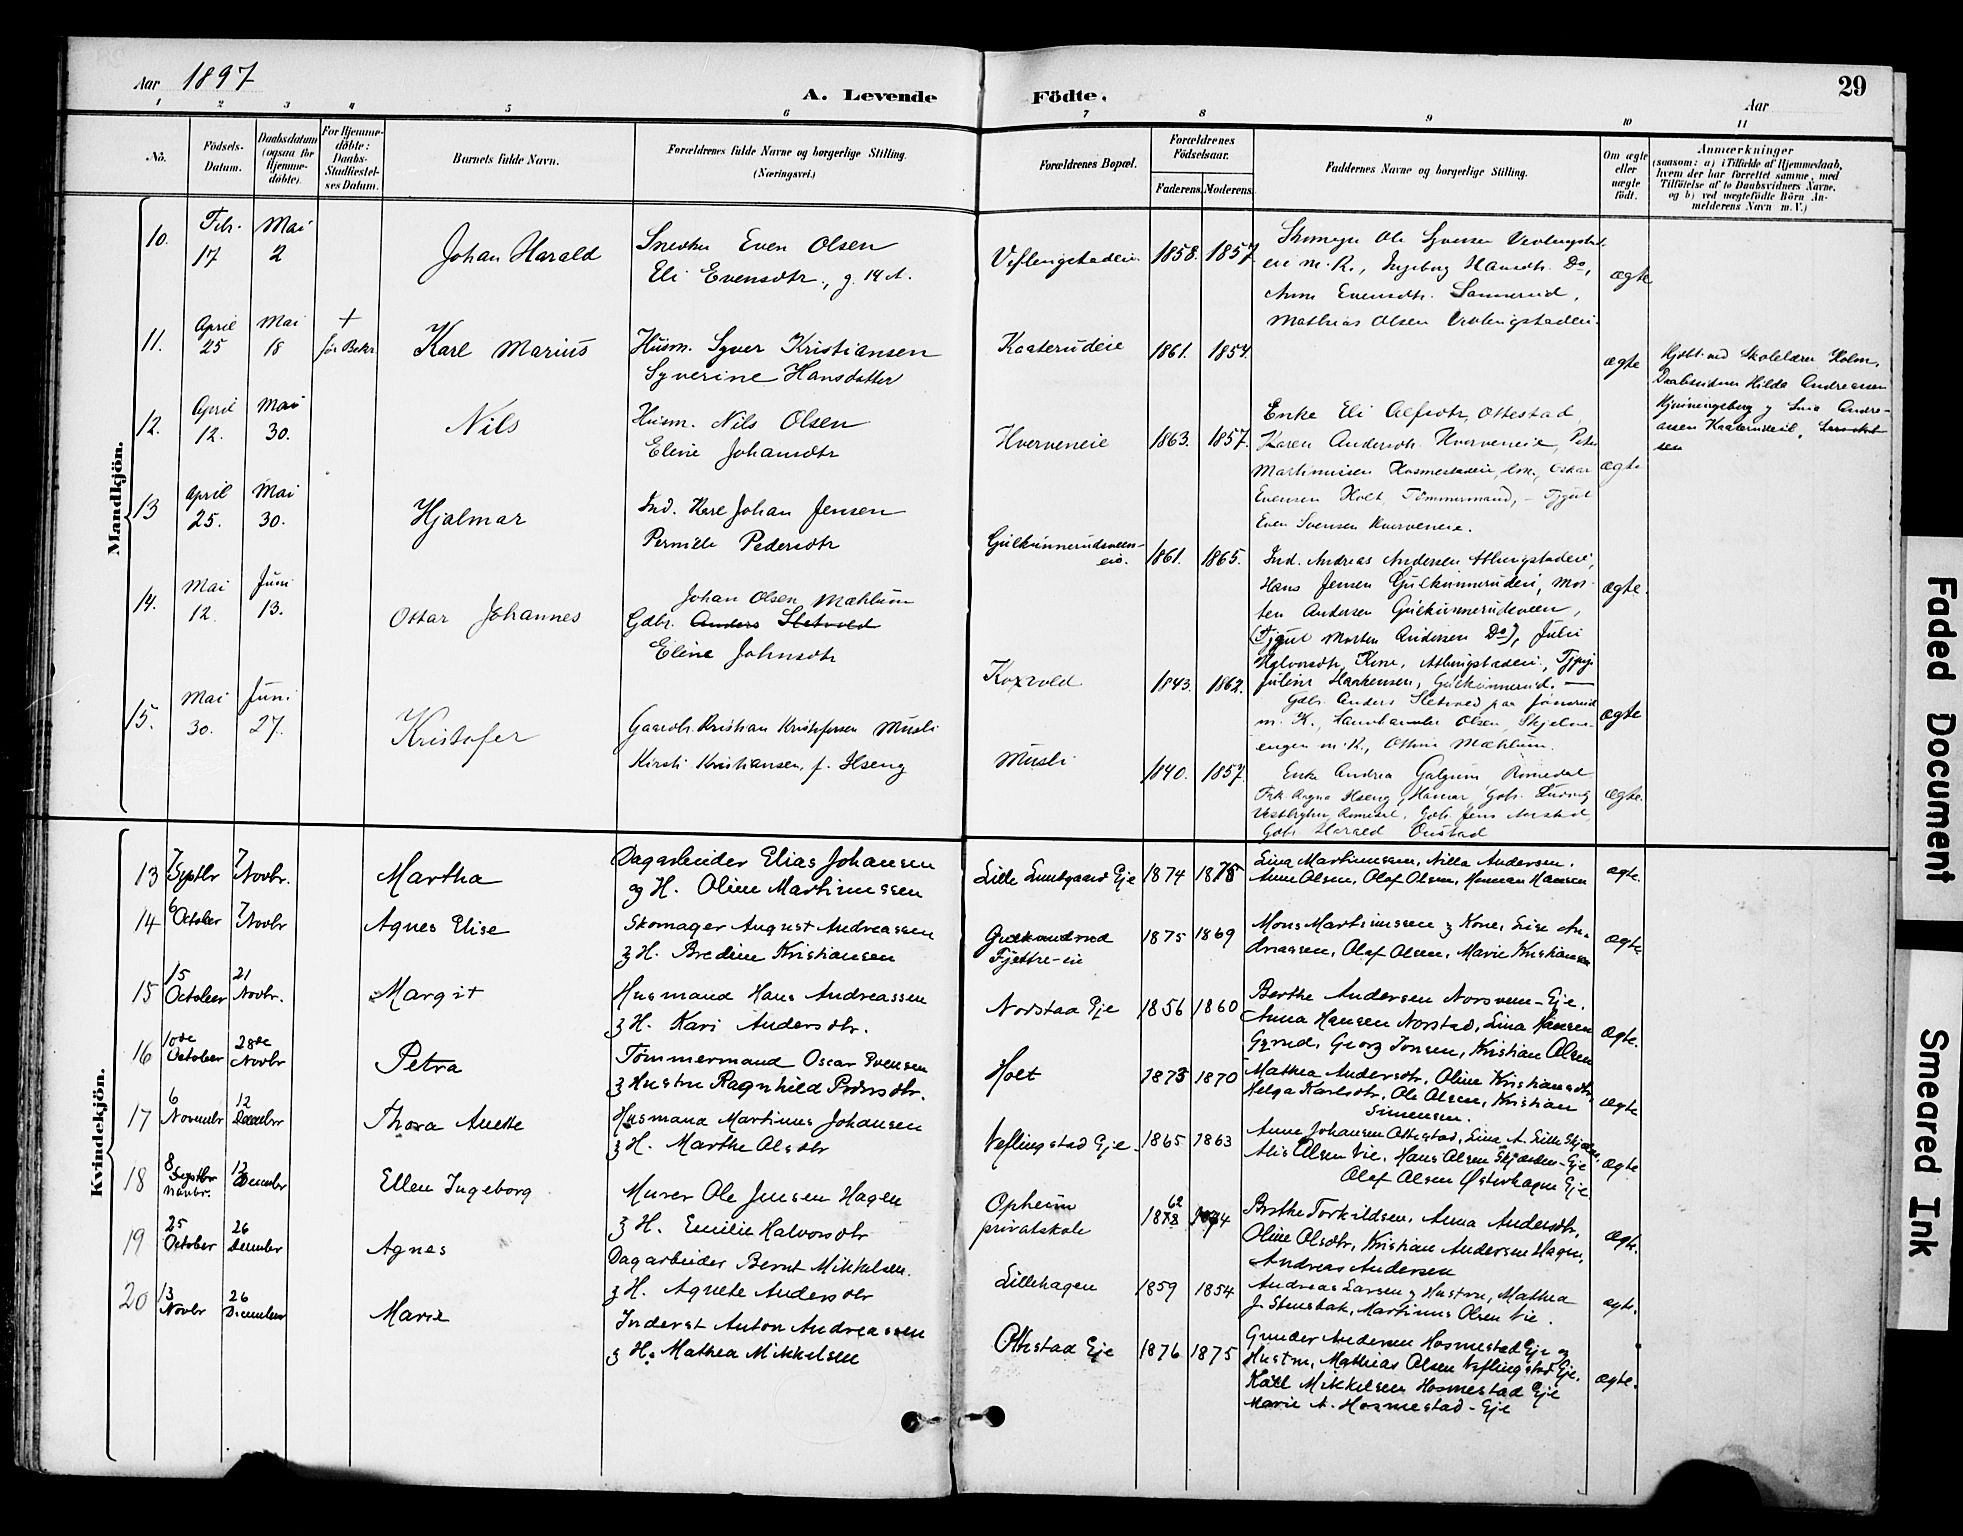 Aar 1897
A. Levende Födte.
Aar
29
1 2 3 4 5 6 7 8 9 10 11
No.
Födsels-Datum.
Daabsdatum (ogsaa for Hjemme-döbte).
For Hjemme-döbte: Daabs-Stadfæstel-ses Datum.
Barnets fulde Navn.
Forældrenes fulde Navne og borgerlige Stilling. (Næringsvei.)
Forældrenes Bopæl.
Forældrenes Födselsaar.
Faderens. Moderens.
Faddernes Navne og borgerlige Stilling.
Om ægte eller uægte födt.
Anmærkninger
(saasom: a) i Tilfælde af Hjemmedaab,
hvem der har forrettet samme, med
Tilföielse af to Daabsvidners Navne,
og b) ved uægtefödte Börn An-
melderens Navn m. V.)
Mandkjön.
10. Febr. 17 Mai 2 Johan Harald
Snedker Even Olsen
Eli Evensdtr., g. 14 A.
Veflengstadeie. 1858. 1857.
Skomager Ole Syversen
eie m. K., Ingeborg Hansdtr. Do,
Anne Evensdtr. Sannerud,
Mathias Olsen
ægte
11. April 25 Mai 18 + Karl Marius
Husm. Syver Kristiansen
Syverine Hansdatter
Kaaterudeie 1861. 1854.
ægte
Hjdbt. ved Skolelærer Holm,
Daabsvidner Hilda Andreassen
Andre-
assen Kaaterudeie,
12. April 12. Mai 30. Nils
Husm. Nils Olsen
Eline Johansdtr
Hverveneie 1863. 1857.
Enke Eli Alfsdtr, Ottestad,
Karen Andersdtr. Hverveneie, Peter
Martinusen Hosmestadeie, Oskar
Evensen Holt Tömmermand, - Tjgut
Even Svensen Hverveneie.
ægte
13 April 25. Mai 30. Hjalmar
Ind. Karl Johan Jensen
Pernille Pedersdtr
Gulkinnerudsveen-
eie. 1861. 1865.
Ind. Andreas Andersen
Hans Jensen Gulkinnerudeie, Mor-
ten Andersen Gulkinnerudsveen,
(Tjgut Morten Andersen Do), Julie
Halvorsdtr, Kone,
Haakensen, Gulkinnerud.
ægte.
14. Mai 12. Juni 13. Ottar Johannes
Johan Olsen Mæhlum
Gdbr. Anders Sletvold
Eline Johnsdtr
Koxvold 1843. 1862.
Gdbr. Anders Sletvold paa
m. K., Olsen, Skjelve-
engen m. K., Mæhlum.
ægte
15. Mai 30. Juni 27. Kristofer
Gaardb. Kristian Kristofersen Musli
Kirsti Kristiansen, f. Hseng
Musli 1840. 1857.
Enke Andrea Galgum Romedal
Hamar, Gbr. Ludvig
Gdbr. Jens
Gdbr Harald Onstad
ægte.
Kvindekjön.
13 7 Septbr 7 Novbr. Martha
Dagarbeider Elias Johansen
og H. Oline Martinussen
Lille Lundgaard Eje 1874 1875
Lina Martinussen, Nilla Andersen,
Anne Olsen, Olaf Olsen, Herman Hansen
ægte.
14 6 October 7 Novbr Agnes Elise
Skomager August Andreassen
og H. Bredine Kristiansen
Gulkundrud
Fjettre-eie 1875 1869
Mons Martinussen og Kone, Lise An-
dreassen, Olaf Olsen, Marie Kristiansen
ægte.
15 15 October 21 Novbr. Margit
Husmand Hans Andreassen
og H. Kari Andersdtr.
Norstaa Eje 1856 1860
Berthe Andersen Norsveen-Eje.
Anna Hansen Norstad, Lina Hansen
Gyrud, Georg Jonsen, Kristian Olsen
ægte.
16 10de October 28de Novbr Petra
Tømmermand Oscar Evensen
og Hustru Ragnhild Pedersdtr.
Holt 1875 1870
Mathea Andersdtr, Oline Kristiansdtr,
Helga Karlsdtr, Ole Olsen, Kristian
Simensen.
ægte
17 6 Novembr 12 Decembr Thora Anette
Husmand Martinus Johansen
og H. Marthe Olsdtr
Veflingstad Eje 1865 1863
Anne Johansen Ottestad, Lina A. Lille
Alis Olsen Vie, Hans Olsen Skjærden-Eje
Olaf Olsen Østerhagen Eje
ægte
18 8 Septbr Novbr. 12 Decembr Ellen Ingeborg
Murer Ole Jensen Hagen
og H. Emilie Halvorsdtr
Opheim
privatskole 1878 62 1874
Berthe Torkildsen, Anna Andersdtr,
Oline Olsdtr, Kristian Andersen Hagen,
Andreas Andersen
ægte.
19 25 October 26 Decembr Agnes
Dagarbeider Bernt Mikkelsen
og H. Agnete Andersdtr
Lillehagen 1859 1854
Andreas Larsen og Hustru, Mathea
J. Stensbak, Martinus Olsen Vie.
ægte.
20 13 Novbr 26 Decembr Marie
Inderst Anton Andreassen
og H. Mathea Mikkelsen
Ottestad Eje 1876 1875
Gunder Andersen Hosmestad Eje og
Hustru, Mathias Olsen Veflingstad Eje,
Karl Mikkelsen Hosmestad Eje
Marie A. Hosmestad-Eje
ægte.
Faded Document
Smeared Ink